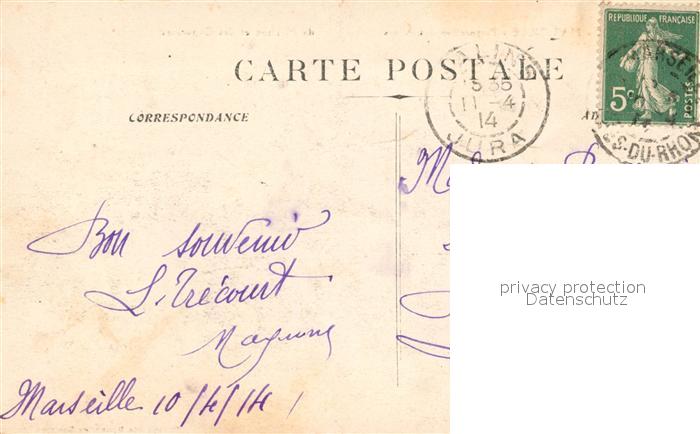 RÉPUBLIQUE FRANÇAISE
5c
POSTES
CARTE POSTALE
11-4
14
JURA
CORRESPONDANCE
AD
14
DU-RHÔ
M
Bon souvenir
L. Trécourt
Marseille 10/4/14
privacy protection
Datenschutz